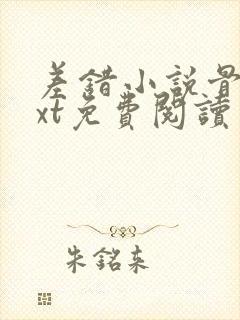 差錯小說骨
xt免費閱讀
朱銘来